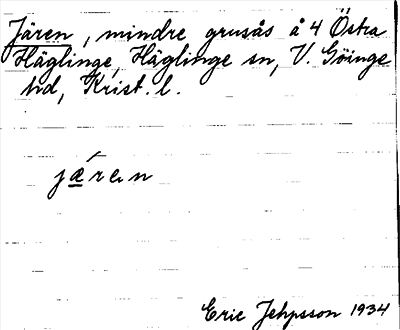 Jären, mindre grusås å 4 Östra
Häglinge, Häglinge sn, V. Göinge
hd, Krist. l.
jæ´ren
Eric Jehpsson 1934